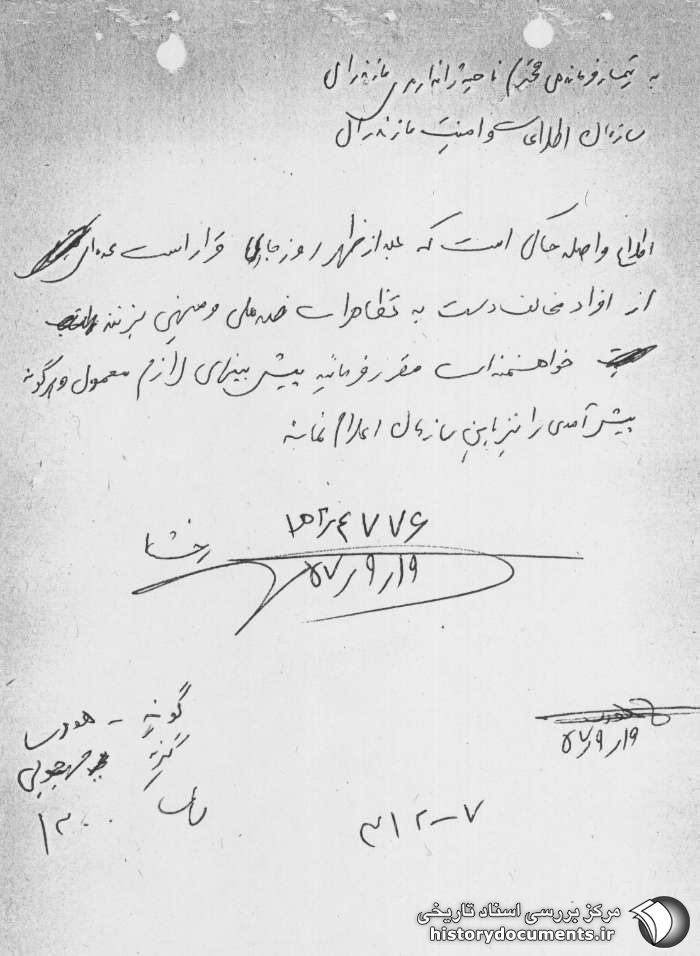 به تیمسار فرماندهی محترم ناحیه ژاندارمری مازندران
سازمان اطلاعات و امنیت مازندران
اطلاع واصله حاکی است که بعد از ظهر روز جاری قرار است عده‌ای
از افراد مخالف دست به تظاهرات ضد ملی و میهنی بزنند
خواهشمند است مقرر فرمائید پیش بینیهای لازم معمول و هرگونه
پیش آمدی را نیز باین سازمان اعلام نمایند
۴۷۷۶
۵۷/۹/۱۹
گیرنده
۵۷/۹/۱۹
۳۱۲-۷
مرکز بررسی اسناد تاریخی
historydocuments.ir